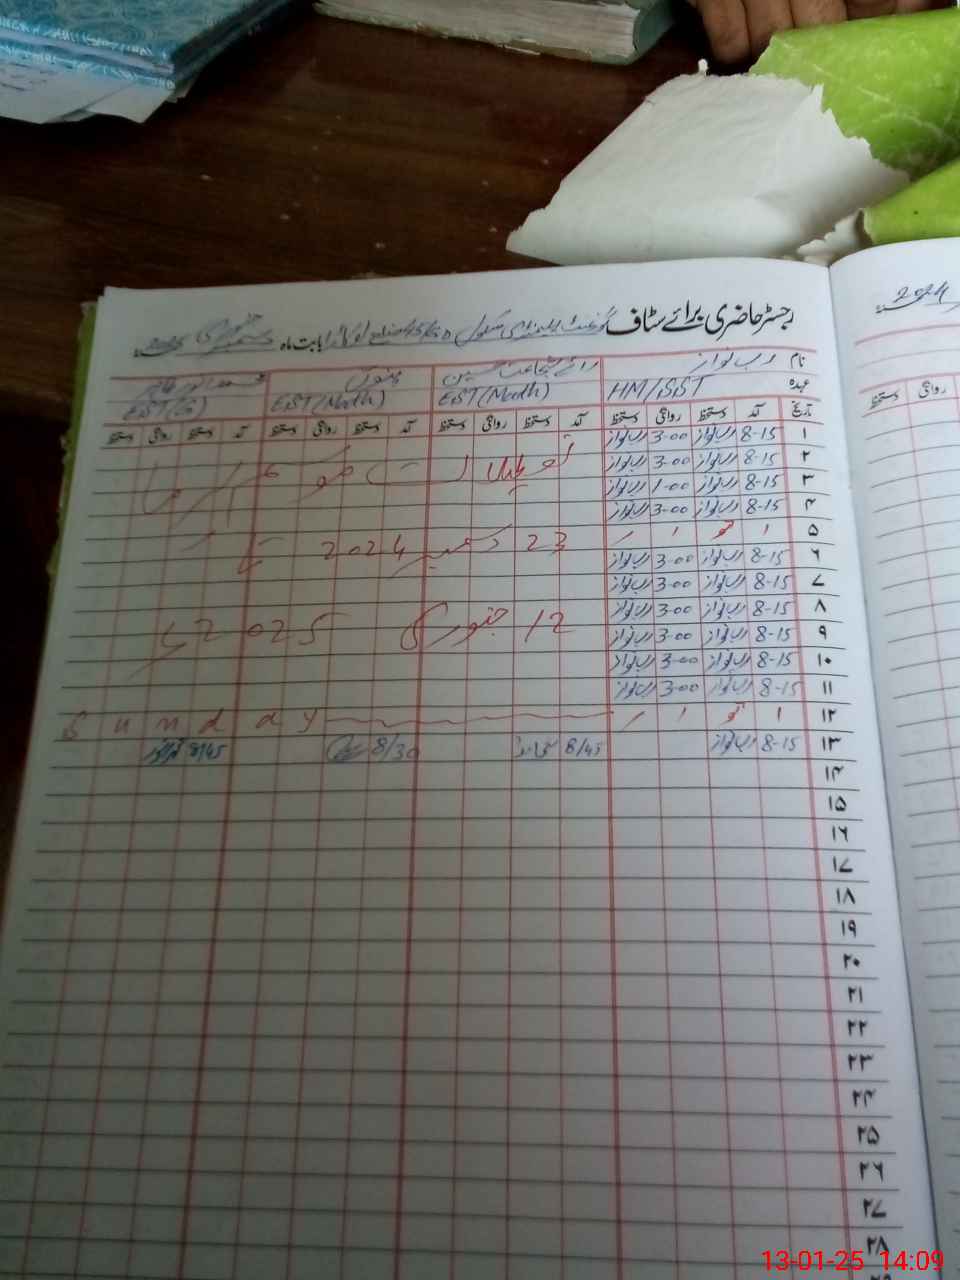 2024
رجسٹر حاضری برائے سٹاف گورنمنٹ ایلیمنٹری سکول اوکاڑا بابت ماہ جنوری 2025
نام رب نواز رائے شجاعت حسین
عہدہ HM/SST EST(Math) EST(Math) EST
تاریخ آمد دستخط روانگی دستخط آمد دستخط روانگی دستخط آمد دستخط روانگی دستخط آمد دستخط روانگی دستخط
دستخط روانگی
۱ 8-15 رب نواز 3-00 رب نواز
۲ 8-15 رب نواز 3-00 رب نواز
۳ 8-15 رب نواز 1-00 رب نواز
۴ 8-15 رب نواز 3-00 رب نواز
تعطیلات موسم سرما
۵
23 دسمبر 2024
۶ 8-15 رب نواز 3-00 رب نواز
۷ 8-15 رب نواز 3-00 رب نواز
۸ 8-15 رب نواز 3-00 رب نواز
12 جنوری 2025
۹ 8-15 رب نواز 3-00 رب نواز
۱۰ 8-15 رب نواز 3-00 رب نواز
۱۱ 8-15 رب نواز 3-00 رب نواز
۱۲ Sunday
۱۳ 8-15 رب نواز 8/45 8/30 8/45
۱۴
۱۵
۱۶
۱۷
۱۸
۱۹
۲۰
۲۱
۲۲
۲۳
۲۴
۲۵
۲۶
۲۷
۲۸
13-01-25 14:09